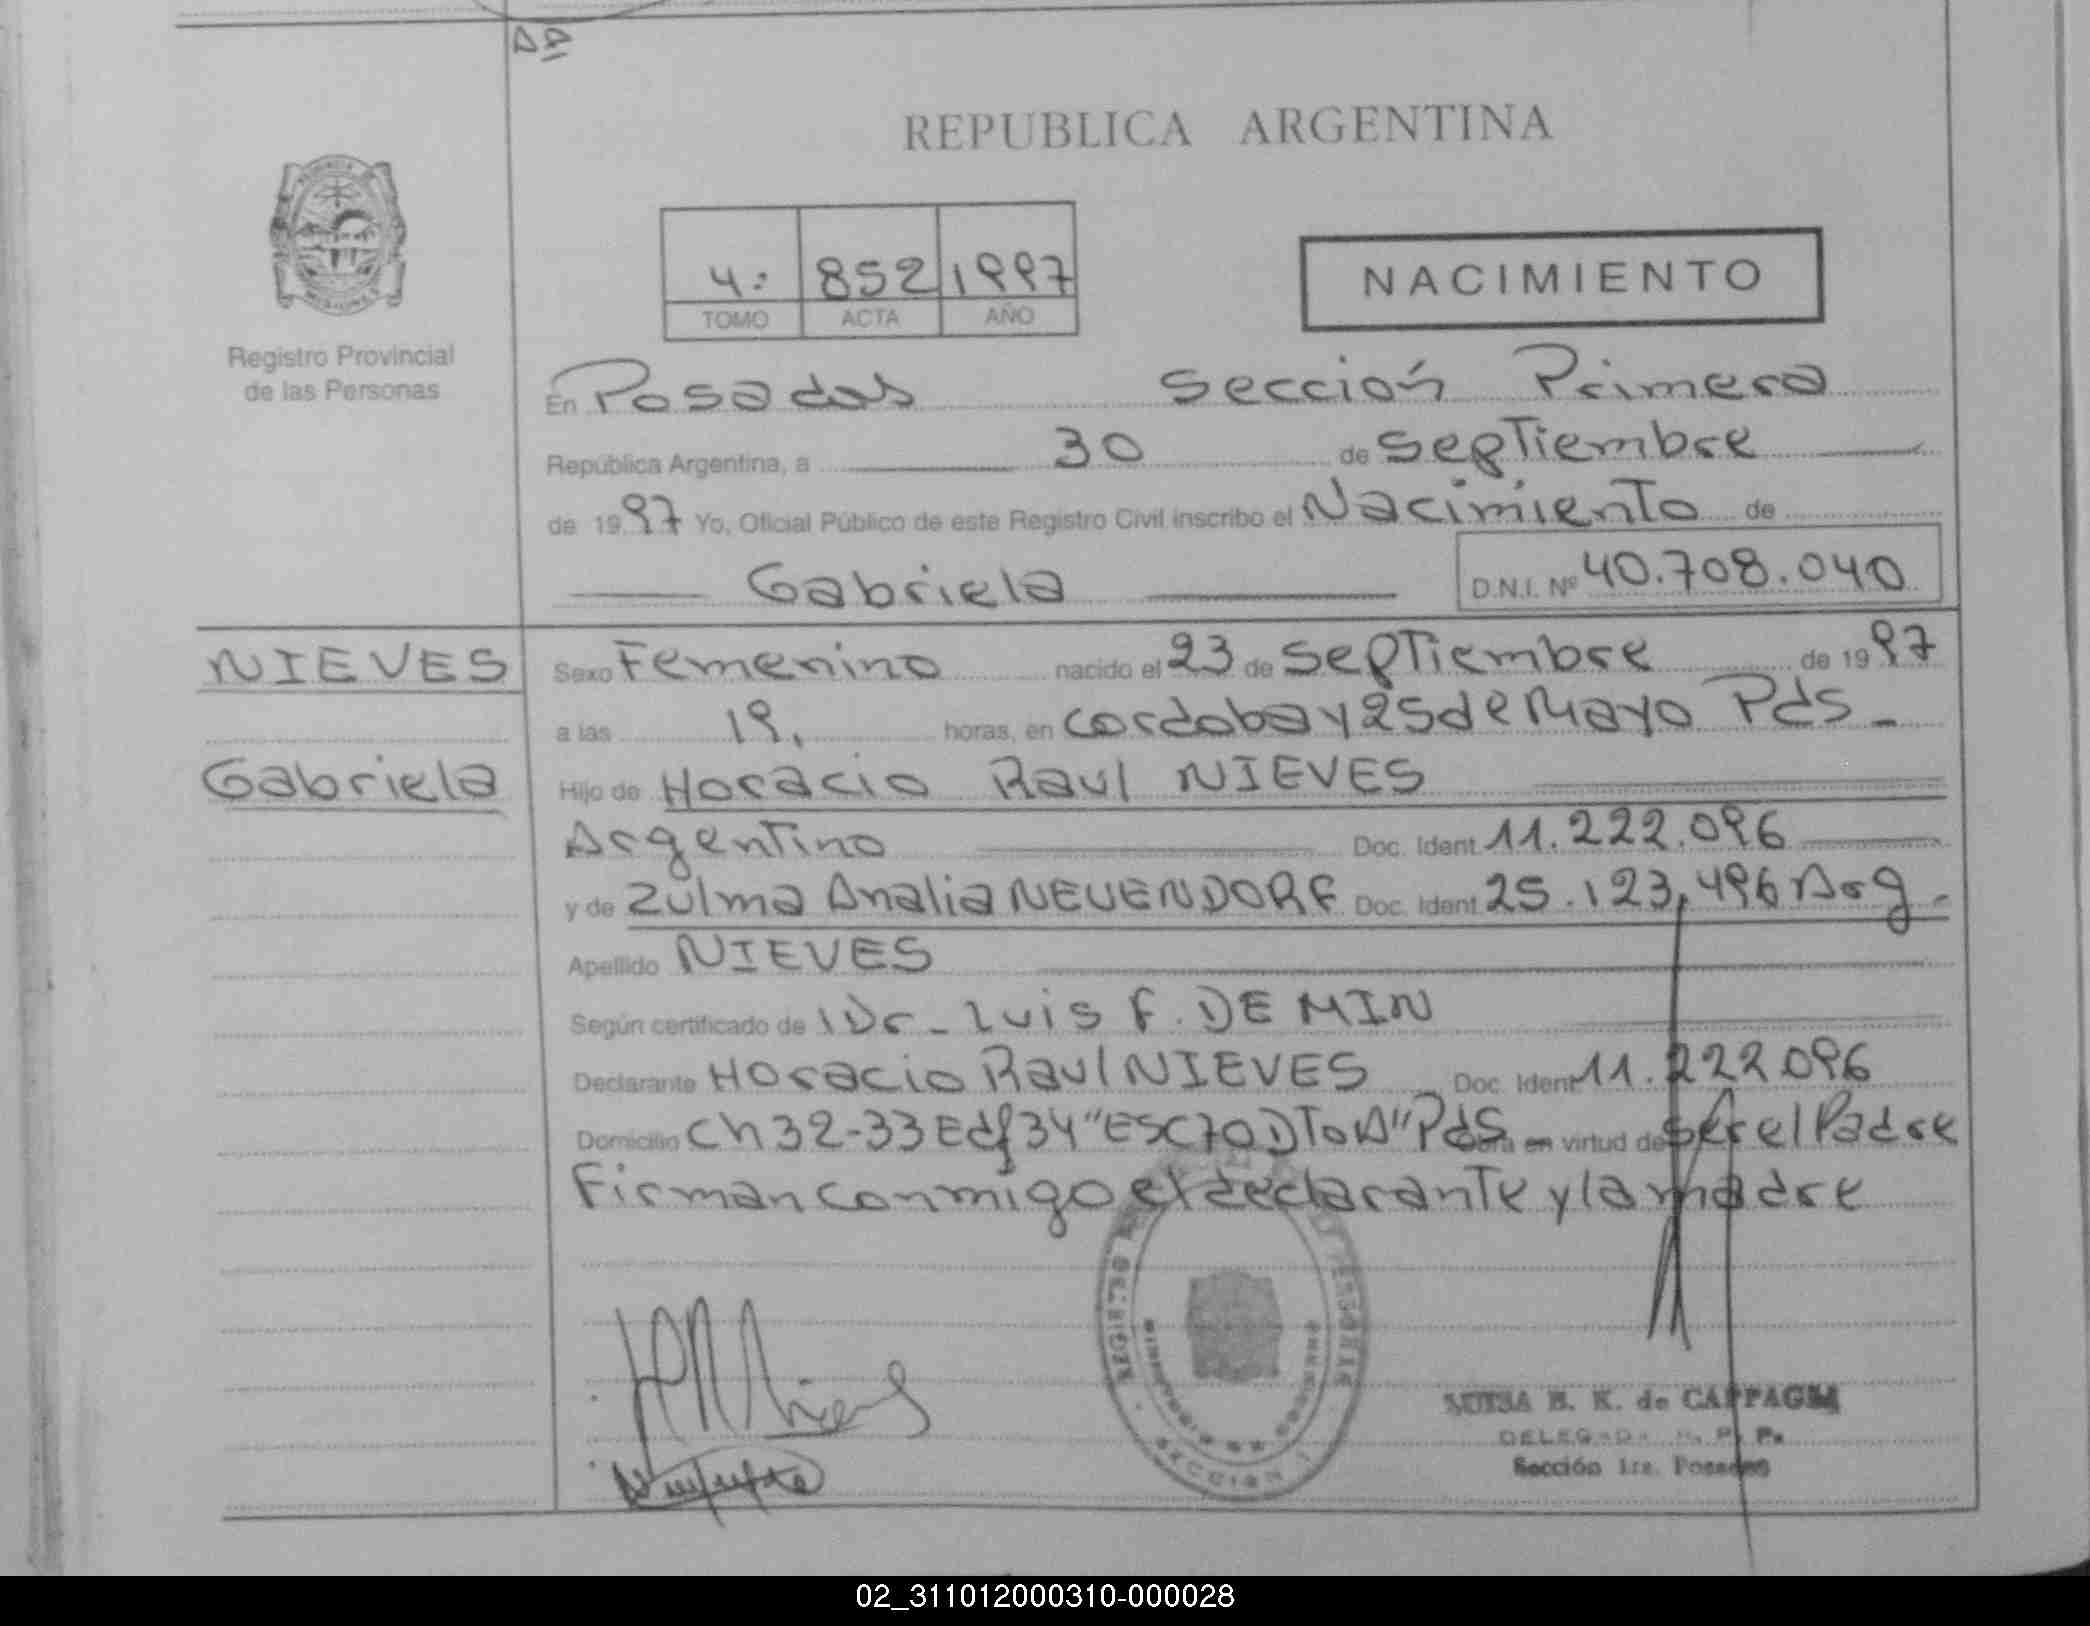 REPUBLICA ARGENTINA
4: 852 1997
TOMO ACTA AÑO
NACIMIENTO
Registro Provincial
de las Personas
En Posadas Sección Primera
República Argentina, a 30 de Septiembre
de 1997 Yo, Oficial Público de este Registro Civil inscribo el Nacimiento de
Gabriela D.N.I. Nº 40.708.040
NIEVES
Gabriela
Sexo Femenino nacido el 23 de Septiembre de 1997
a las 19. horas, en Cordoba y 25 de Mayo Pds -
Hijo de Horacio Raul NIEVES
Argentino Doc. Ident. 11.222.096
y de Zulma Analia NEUENDORF Doc. Ident. 25.123,496 Arg.
Apellido NIEVES
Según certificado de Dr - Luis F. DE MIN
Declarante Horacio Raul NIEVES Doc. Ident. 11.222096
Domicilio Ch 32-33 Edf 34 "ESC70 DTo A" Pds en virtud de ser el Padre
Firman conmigo el declarante y la madre
SECCION 1
B. K. de CAPPAGLI
DELEGADA R. P. Ps
Sección 1ra. Posadas
02_311012000310-000028